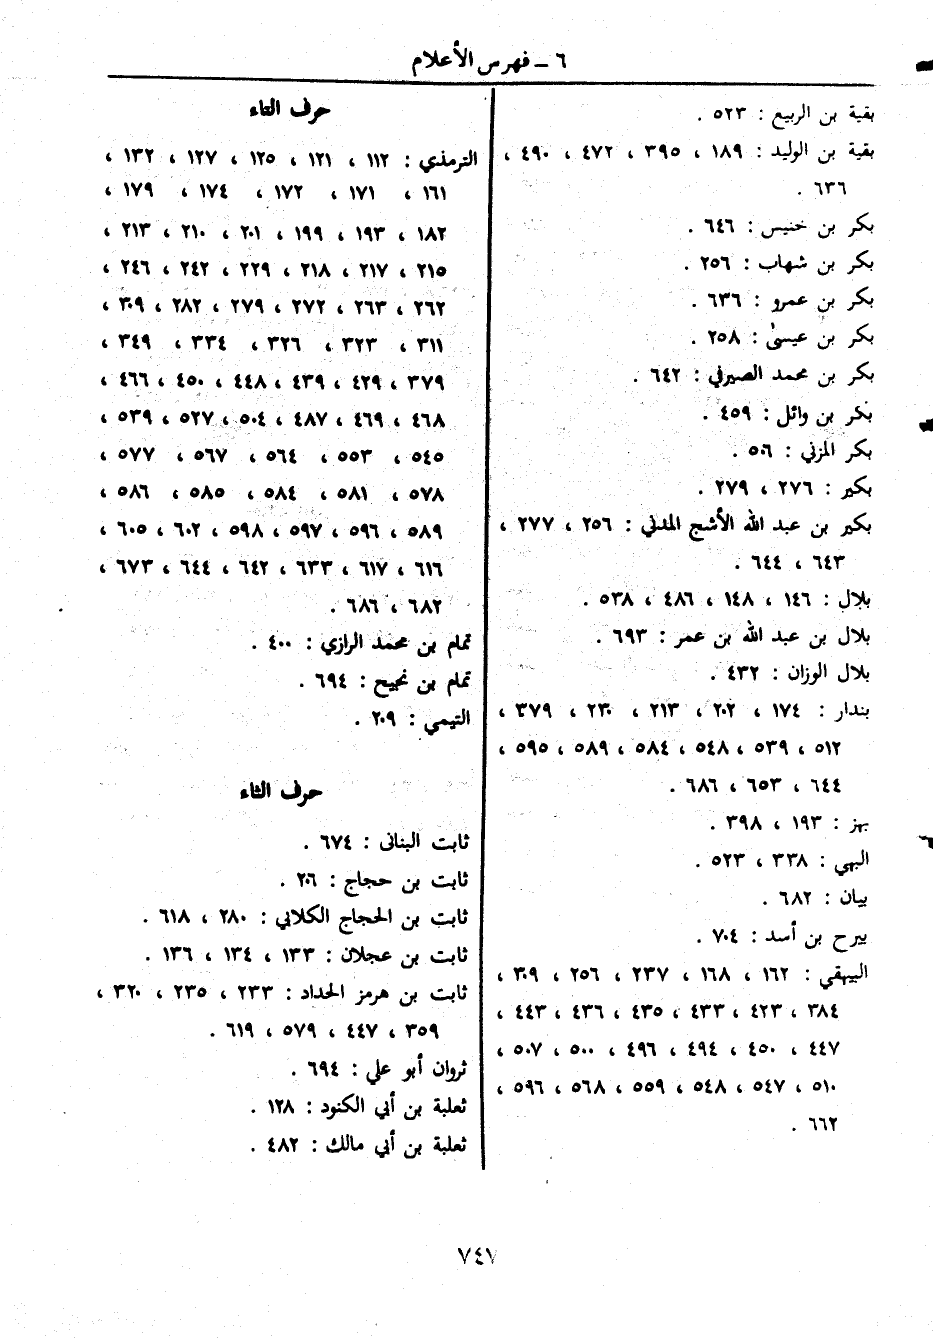 ٦ ـ فهرس الأعلام
بقية بن الربيع : ٥٢٣ .
بقية بن الوليد : ١٨٩ ، ٣٩٥ ، ٤٧٢ ، ٤٩٠ ،
٦٣٦ .
بكر بن خنيس : ٦٤٦ .
بكر بن شهاب : ٢٥٦ .
بكر بن عمرو : ٦٣٦ .
بكر بن عيسىٰ : ٢٥٨ .
بكر بن محمد الصيرفي : ٦٤٢ .
بكر بن وائل : ٤٥٩ .
بكر المزني : ٥٠٦ .
بكير : ٢٧٦ ، ٢٧٩ .
بكير بن عبد الله الأشج المدني : ٢٥٦ ، ٢٧٧ ،
٦٤٣ ، ٦٤٤ .
بلال : ١٤٦ ، ١٤٨ ، ٤٨٦ ، ٥٣٨ .
بلال بن عبد الله بن عمر : ٦٩٣ .
بلال الوزان : ٤٣٢ .
بندار : ١٧٤ ، ٢٠٢ ، ٢١٣ ، ٢٣٠ ، ٣٧٩ ،
٥١٢ ، ٥٣٩ ، ٥٤٨ ، ٥٨٤ ، ٥٨٩ ، ٥٩٥ ،
٦٤٤ ، ٦٥٣ ، ٦٨٦ .
بهز : ١٩٣ ، ٣٩٨ .
البهي : ٣٣٨ ، ٥٢٣ .
بيان : ٦٨٢ .
بيرح بن أسد : ٧٠٤ .
البيهقي : ١٦٢ ، ١٦٨ ، ٢٣٧ ، ٢٥٦ ، ٣٠٩ ،
٣٨٤ ، ٤٢٣ ، ٤٣٣ ، ٤٣٥ ، ٤٣٦ ، ٤٤٣ ،
٤٤٧ ، ٤٥٠ ، ٤٩٤ ، ٤٩٦ ، ٥٠٠ ، ٥٠٧ ،
٥١٠ ، ٥٤٧ ، ٥٤٨ ، ٥٥٩ ، ٥٦٨ ، ٥٩٦ ،
٦٦٢ .
حرف التاء
الترمذي : ١١٢ ، ١٢١ ، ١٢٥ ، ١٢٧ ، ١٣٢ ،
١٦١ ، ١٧١ ، ١٧٢ ، ١٧٤ ، ١٧٩ ،
١٨٢ ، ١٩٣ ، ١٩٩ ، ٢٠١ ، ٢١٠ ، ٢١٣ ،
٢١٥ ، ٢١٧ ، ٢١٨ ، ٢٢٩ ، ٢٤٢ ، ٢٤٦ ،
٢٦٢ ، ٢٦٣ ، ٢٧٢ ، ٢٧٩ ، ٢٨٢ ، ٣٠٩ ،
٣١١ ، ٣٢٣ ، ٣٢٦ ، ٣٣٤ ، ٣٤٩ ،
٣٧٩ ، ٤٢٩ ، ٤٣٩ ، ٤٤٨ ، ٤٥٠ ، ٤٦٦ ،
٤٦٨ ، ٤٦٩ ، ٤٨٧ ، ٥٠٤ ، ٥٢٧ ، ٥٣٩ ،
٥٤٥ ، ٥٥٣ ، ٥٦٤ ، ٥٦٧ ، ٥٧٧ ،
٥٧٨ ، ٥٨١ ، ٥٨٤ ، ٥٨٥ ، ٥٨٦ ،
٥٨٩ ، ٥٩٦ ، ٥٩٧ ، ٥٩٨ ، ٦٠٢ ، ٦٠٥ ،
٦١٦ ، ٦١٧ ، ٦٣٣ ، ٦٤٢ ، ٦٤٤ ، ٦٧٣ ،
٦٨٢ ، ٦٨٦ .
تمام بن محمد الرازي : ٤٠٠ .
تمام بن نجيح : ٦٩٤ .
التيمي : ٢٠٩ .
حرف الثاء
ثابت البنانى : ٦٧٤ .
ثابت بن حجاج : ٢٠٦ .
ثابت بن الحجاج الكلابي : ٢٨٠ ، ٦١٨ .
ثابت بن عجلان : ١٣٣ ، ١٣٤ ، ١٣٦ .
ثابت بن هرمز الحداد : ٢٣٣ ، ٢٣٥ ، ٣٢٠ ،
٣٥٩ ، ٤٤٧ ، ٥٧٩ ، ٦١٩ .
ثروان أبو علي : ٦٩٤ .
ثعلبة بن أبي الكنود : ١٢٨ .
ثعلبة بن أبي مالك : ٤٨٢ .
٧٤٧